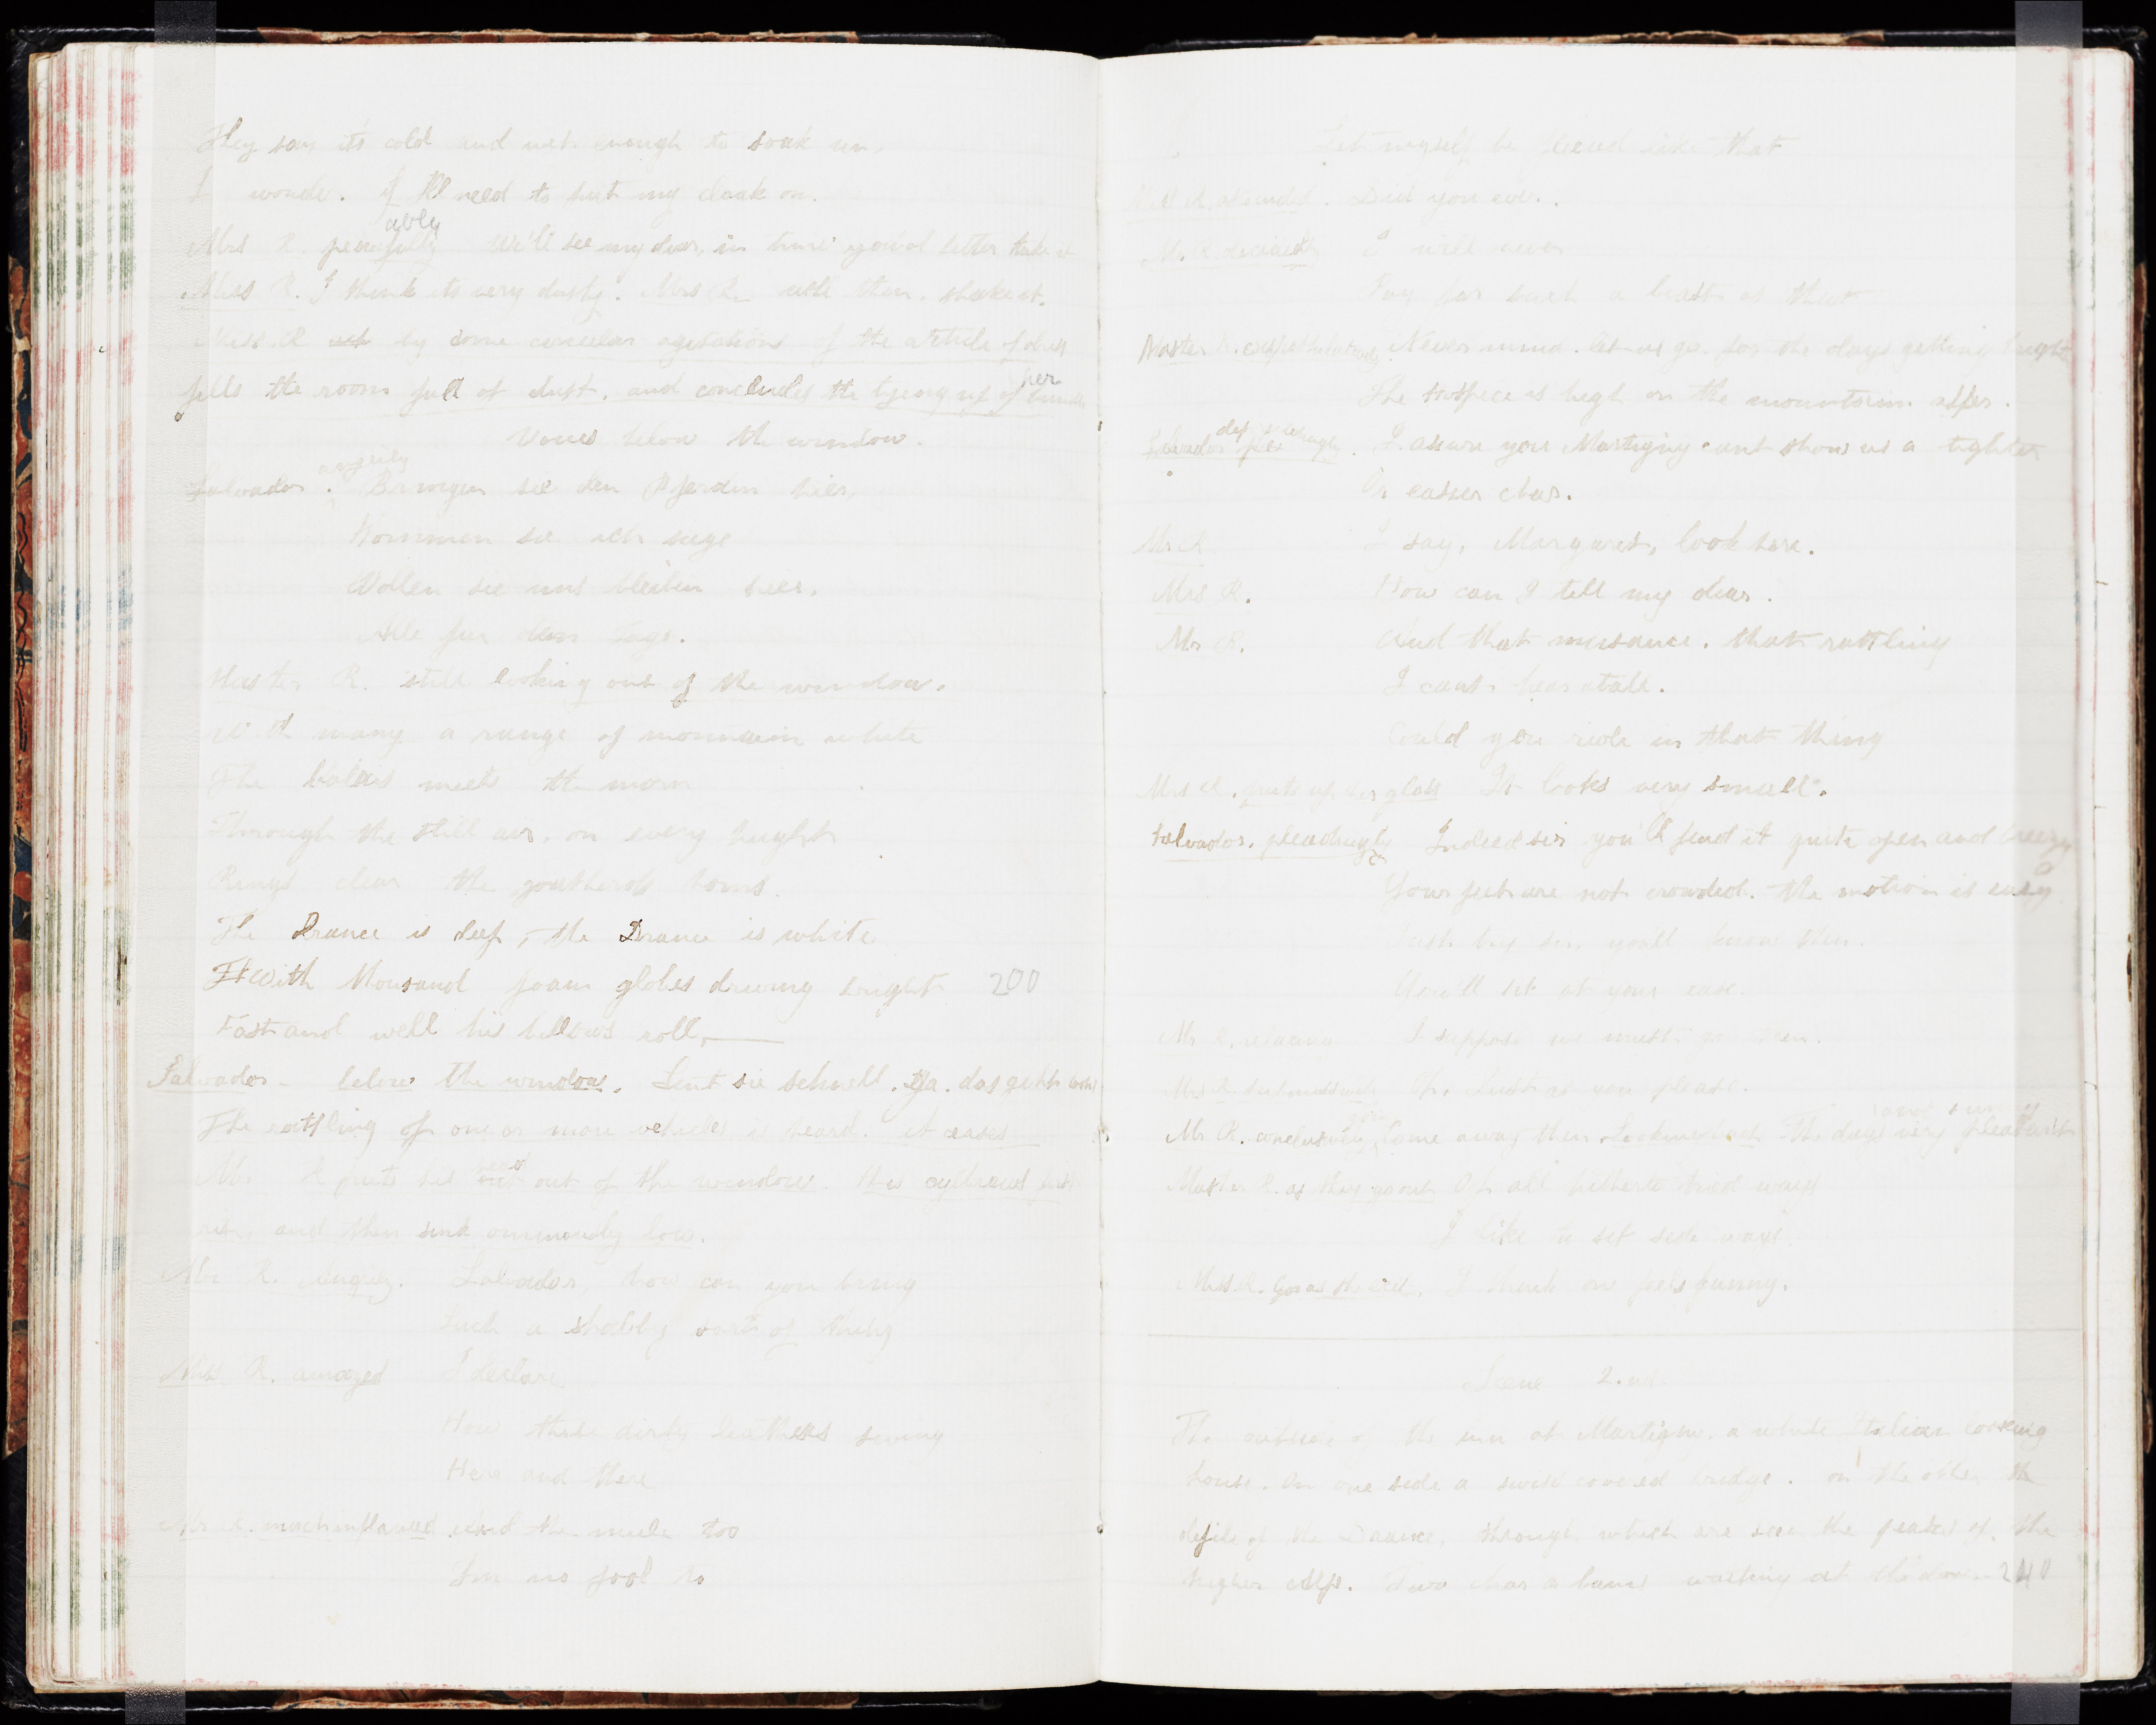 They say its cold and wet enough to soak un.
I wonder. if Ill need to put my cloak on.
ably
Mrs R. peacefully We'll see my dear, in time you'd better take it
Miss R. I think its very dusty. Mrs R. well then. shake it.
Miss. R by some circular agitations of the article
fills the room full of dust, and concludes the tying up of her
Voices below the window.
angrily
Salvador. Bringen sie den Pferden hier,
Kommen sie ich sage
Wollen sie uns bleiben hier,
Alle fur dem Tage.
Master R. still looking out of the window.
With many a range of mountain white
The meets the morn
Through the still air, on every height
Rings clear the goatherds horns.
The Drance is deep, the Drance is white
With thousand foam globes driving bright 200
Fast and well his billows roll,
Salvador - below the window. sie schnell. Ya. das geht
The rattling of one or more vehicles is heard. it ceases
Mr R puts his head out of the window. His eyebrows first
and then sink ominously low.
Mr R. Angrily. Salvador, how can you bring
Such a shabby sort of thing
Mrs R. amazed I declare
How those dirty leathers swing
Here and there
Mr R. much inflamed And the mule too
Im no fool to
Let myself be like that
Mrs R. astounded. Did you ever.
Mr R. decidedly I will never
Pay for such a beast as that
Master R. Never mind. let us go. for the days getting bright
The hospice is high on the mountain alps.
Salvador I assure you Martigny cant show us a tighter
Or easier char.
Mr R I say, Margaret, look here.
Mrs R. How can I tell my dear.
Mr R. And that nuisance. that rattling
I cant hear atall.
Could you ride in that thing
Mrs R. puts up her glass It looks very small.
Salvador. pleadingly Indeed sir you'll find it quite open and breezy
Your feet are not crowded. the motion is easy
Just try sir, you'll know then.
You'll sit at your ease.
Mr R. I suppose we must go then.
Mrs R. submissively Oh, Just as you please.
Mr R. conclusively Come away then. Looking back The days very pleasant
Master R. as they go out Of all hitherto tried ways
I like to sit side ways.
Miss R. I think one feels funny.
Scene 2.nd
The outside of the inn at Martigny. a white, Italian looking
house. On one side a swiss covered bridge. on the other the
defile of the Drance, through which are seen the peaks of the
higher Alps. Two char a bancs waiting at the door. 240